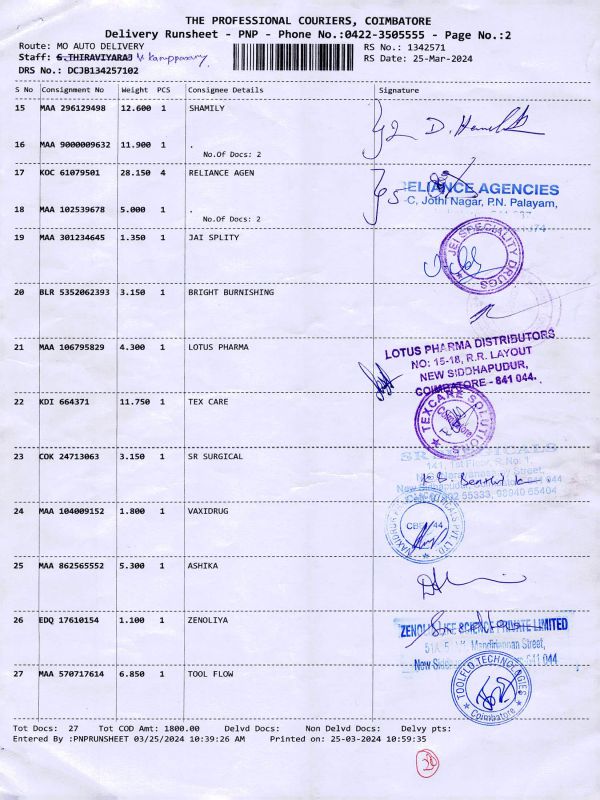 THE PROFESSIONAL COURIERS, COIMBATORE
Delivery Runsheet - PNP - Phone No.:0422-3505555 - Page No.:2
Route: MO AUTO DELIVERY RS No.: 1342571
Staff: S.THIRAVIYARAJ RS Date: 25-Mar-2024
DRS No.: DCJB134257102
S No Consignment No Weight PCS Consignee Details Signature
15 MAA 296129498 12.600 1 SHAMILY
16 MAA 9000009632 11.900 1 .
No.Of Docs: 2
17 KOC 61079501 28.150 4 RELIANCE AGEN
RELIANCE AGENCIES
C, Jothi Nagar, P.N. Palayam,
18 MAA 102539678 5.000 1 .
No.Of Docs: 2
19 MAA 301234645 1.350 1 JAI SPLITY
JEI SPECIALITY DRUGS
20 BLR 5352062393 3.150 1 BRIGHT BURNISHING
21 MAA 106795829 4.300 1 LOTUS PHARMA
LOTUS PHARMA DISTRIBUTORS
NO: 15-18, R.R. LAYOUT
NEW SIDDHAPUDUR,
COIMBATORE - 641 044.
22 KDI 664371 11.750 1 TEX CARE
TEXCARE SOLUTIONS
23 COK 24713063 3.150 1 SR SURGICAL
141, 1st Floor, R.No: 1,
24 MAA 104009152 1.800 1 VAXIDRUG
25 MAA 862565552 5.300 1 ASHIKA
26 EDQ 17610154 1.100 1 ZENOLIYA
LIFE SCIENCE PRIVATE LIMITED
Street,
641 044
27 MAA 570717614 6.850 1 TOOL FLOW
TOOLFLO TECHNOLOGIES
Coimbatore
Tot Docs: 27 Tot COD Amt: 1800.00 Delvd Docs: Non Delvd Docs: Delvy pts:
Entered By :PNPRUNSHEET 03/25/2024 10:39:26 AM Printed on: 25-03-2024 10:59:35